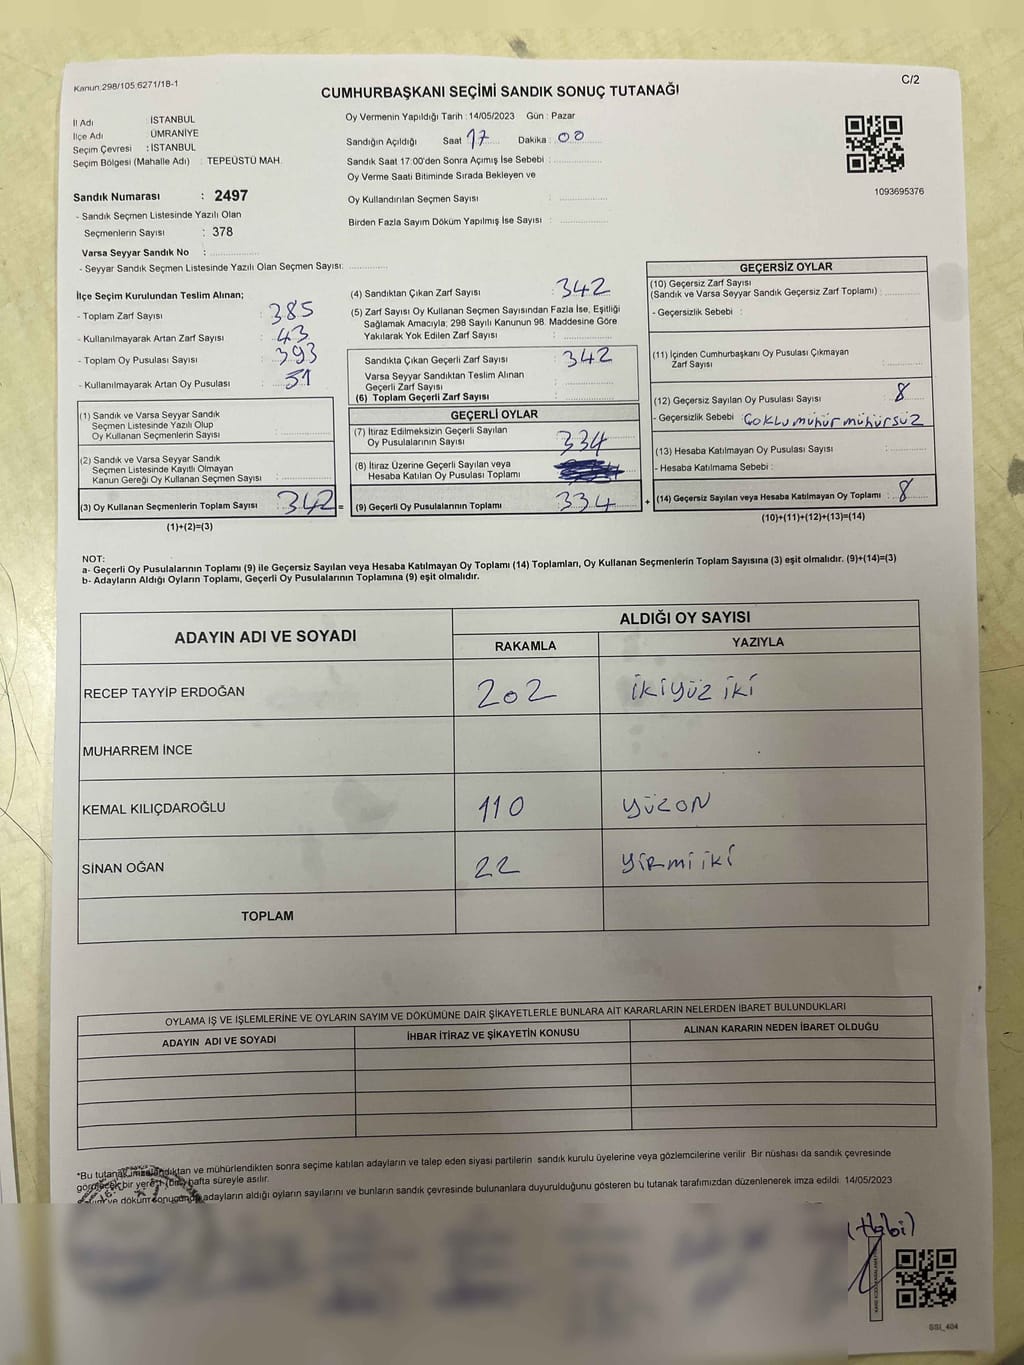 Kanun:298/105;6271/18-1
C/2
CUMHURBAŞKANI SEÇİMİ SANDIK SONUÇ TUTANAĞI
İl Adı : İSTANBUL
İlçe Adı : ÜMRANİYE
Seçim Çevresi : İSTANBUL
Seçim Bölgesi (Mahalle Adı) : TEPEÜSTÜ MAH.
Sandık Numarası : 2497
- Sandık Seçmen Listesinde Yazılı Olan
Seçmenlerin Sayısı : 378
Varsa Seyyar Sandık No :
- Seyyar Sandık Seçmen Listesinde Yazılı Olan Seçmen Sayısı:
Oy Vermenin Yapıldığı Tarih : 14/05/2023 Gün : Pazar
Sandığın Açıldığı Saat : 17 Dakika : 00
Sandık Saat 17:00'den Sonra Açımış İse Sebebi :
Oy Verme Saati Bitiminde Sırada Bekleyen ve
Oy Kullandırılan Seçmen Sayısı :
Birden Fazla Sayım Döküm Yapılmış İse Sayısı :
1093695376
İlçe Seçim Kurulundan Teslim Alınan;
- Toplam Zarf Sayısı : 385
- Kullanılmayarak Artan Zarf Sayısı : 43
- Toplam Oy Pusulası Sayısı : 393
- Kullanılmayarak Artan Oy Pusulası : 51
(1) Sandık ve Varsa Seyyar Sandık
Seçmen Listesinde Yazılı Olup
Oy Kullanan Seçmenlerin Sayısı :
(2) Sandık ve Varsa Seyyar Sandık
Seçmen Listesinde Kayıtlı Olmayan
Kanun Gereği Oy Kullanan Seçmen Sayısı :
(3) Oy Kullanan Seçmenlerin Toplam Sayısı : 342 =
(1)+(2)=(3)
(4) Sandıktan Çıkan Zarf Sayısı : 342
(5) Zarf Sayısı Oy Kullanan Seçmen Sayısından Fazla İse, Eşitliği
Sağlamak Amacıyla; 298 Sayılı Kanunun 98. Maddesine Göre
Yakılarak Yok Edilen Zarf Sayısı :
Sandıkta Çıkan Geçerli Zarf Sayısı : 342
Varsa Seyyar Sandıktan Teslim Alınan
Geçerli Zarf Sayısı :
(6) Toplam Geçerli Zarf Sayısı :
GEÇERLİ OYLAR
(7) İtiraz Edilmeksizin Geçerli Sayılan
Oy Pusulalarının Sayısı : 334
(8) İtiraz Üzerine Geçerli Sayılan veya
Hesaba Katılan Oy Pusulası Toplamı
(9) Geçerli Oy Pusulalarının Toplamı : 334 +
GEÇERSİZ OYLAR
(10) Geçersiz Zarf Sayısı
(Sandık ve Varsa Seyyar Sandık Geçersiz Zarf Toplamı) :
- Geçersizlik Sebebi :
(11) İçinden Cumhurbaşkanı Oy Pusulası Çıkmayan
Zarf Sayısı :
(12) Geçersiz Sayılan Oy Pusulası Sayısı : 8
- Geçersizlik Sebebi : Çoklu mühür mühürsüz
(13) Hesaba Katılmayan Oy Pusulası Sayısı :
- Hesaba Katılmama Sebebi :
(14) Geçersiz Sayılan veya Hesaba Katılmayan Oy Toplamı : 8
(10)+(11)+(12)+(13)=(14)
NOT:
a- Geçerli Oy Pusulalarının Toplamı (9) ile Geçersiz Sayılan veya Hesaba Katılmayan Oy Toplamı (14) Toplamları, Oy Kullanan Seçmenlerin Toplam Sayısına (3) eşit olmalıdır. (9)+(14)=(3)
b- Adayların Aldığı Oyların Toplamı, Geçerli Oy Pusulalarının Toplamına (9) eşit olmalıdır.
ADAYIN ADI VE SOYADI
ALDIĞI OY SAYISI
RAKAMLA YAZIYLA
RECEP TAYYİP ERDOĞAN 202 İKİYÜZ İKİ
MUHARREM İNCE
KEMAL KILIÇDAROĞLU 110 YÜZON
SİNAN OĞAN 22 YİRMİ İKİ
TOPLAM
OYLAMA İŞ VE İŞLEMLERİNE VE OYLARIN SAYIM VE DÖKÜMÜNE DAİR ŞİKAYETLERLE BUNLARA AİT KARARLARIN NELERDEN İBARET BULUNDUKLARI
ADAYIN ADI VE SOYADI İHBAR İTİRAZ VE ŞİKAYETİN KONUSU ALINAN KARARIN NEDEN İBARET OLDUĞU
*Bu tutanak imzalandıktan ve mühürlendikten sonra seçime katılan adayların ve talep eden siyasi partilerin sandık kurulu üyelerine veya gözlemcilerine verilir. Bir nüshası da sandık çevresinde
görülecek bir yere 1 (bir) hafta süreyle asılır.
döküm sonucunda adayların aldığı oyların sayılarını ve bunların sandık çevresinde bulunanlara duyurulduğunu gösteren bu tutanak tarafımızdan düzenlenerek imza edildi. 14/05/2023
SSI_404